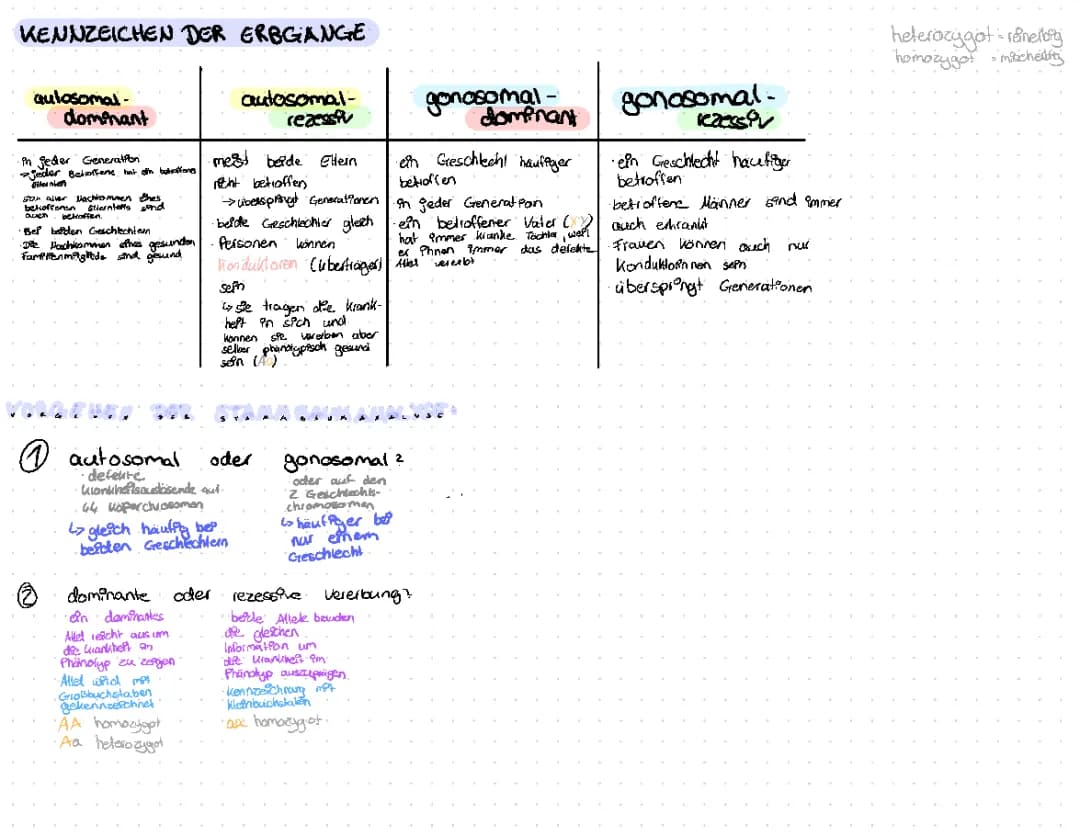 KENNZEICHEN DER ERBGÄNGE
heterozygot = reinerbig
homozygot = mischerbig
autosomal-
dominant
autosomal-
rezessiv
gonosomal-
dominant
gonosomal-
rezessiv
in jeder Generation
→ jeder Betroffene hat ein betroffenes
Elternteil
50% aller Nachkommen eines
betroffenen Elternteils sind
auch betroffen.
Bei beiden Geschlechtern
Die Nachkommen eines gesunden
Familienmitglieds sind gesund
meist beide Eltern
nicht betroffen
→ überspringt Generationen
· beide Geschlechter gleich
· Personen können
Konduktoren (Überträger)
sein
↳ sie tragen die Krank-
heit in sich und
können sie vererben aber
selber phänotypisch gesund
sein (Aa)
ein Geschlecht häufiger
betroffen
in jeder Generation
· ein betroffener Vater (XY)
hat immer kranke Töchter, weil
er ihnen immer das defekte
Allel vererbt
· ein Geschlecht häufiger
betroffen
· betroffene Männer sind immer
auch erkrankt
· Frauen können auch nur
Konduktorinnen sein
· überspringt Generationen
VORGEHEN DER STAMMBAUMANALYSE:
① autosomal oder gonosomal?
· defekte
krankheitsauslösende auf
44 Körperchrosomen
↳ gleich häufig bei
beiden Geschlechtern
oder auf den
2 Geschlechts-
chromosomen
↳ häufiger bei
nur einem
Geschlecht
② dominante oder rezessive Vererbung?
· ein dominantes
Allel reicht aus um
die Krankheit im
Phänotyp zu zeigen
· Allel wird mit
Großbuchstaben
gekennzeichnet
AA homozygot
Aa heterozygot
beide Allele
die gleichen
Information um
die Krankheit im
Phänotyp auszuprägen
· Kennzeichnung mit
Kleinbuchstaben
aa homozygot